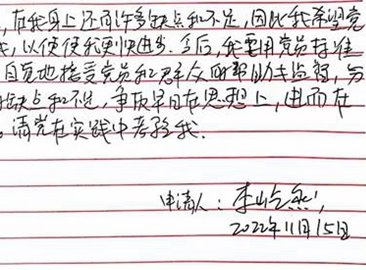 ，在我身上还有许多缺点和不足，因此我希望党
，以便使我更快进步。今后，我要用党员标准
自觉地接受党员和群众的帮助与监督，努
缺点和不足，争取早日在思想上，进而在
。请党在实践中考验我。
申请人：李
2022年11月15日